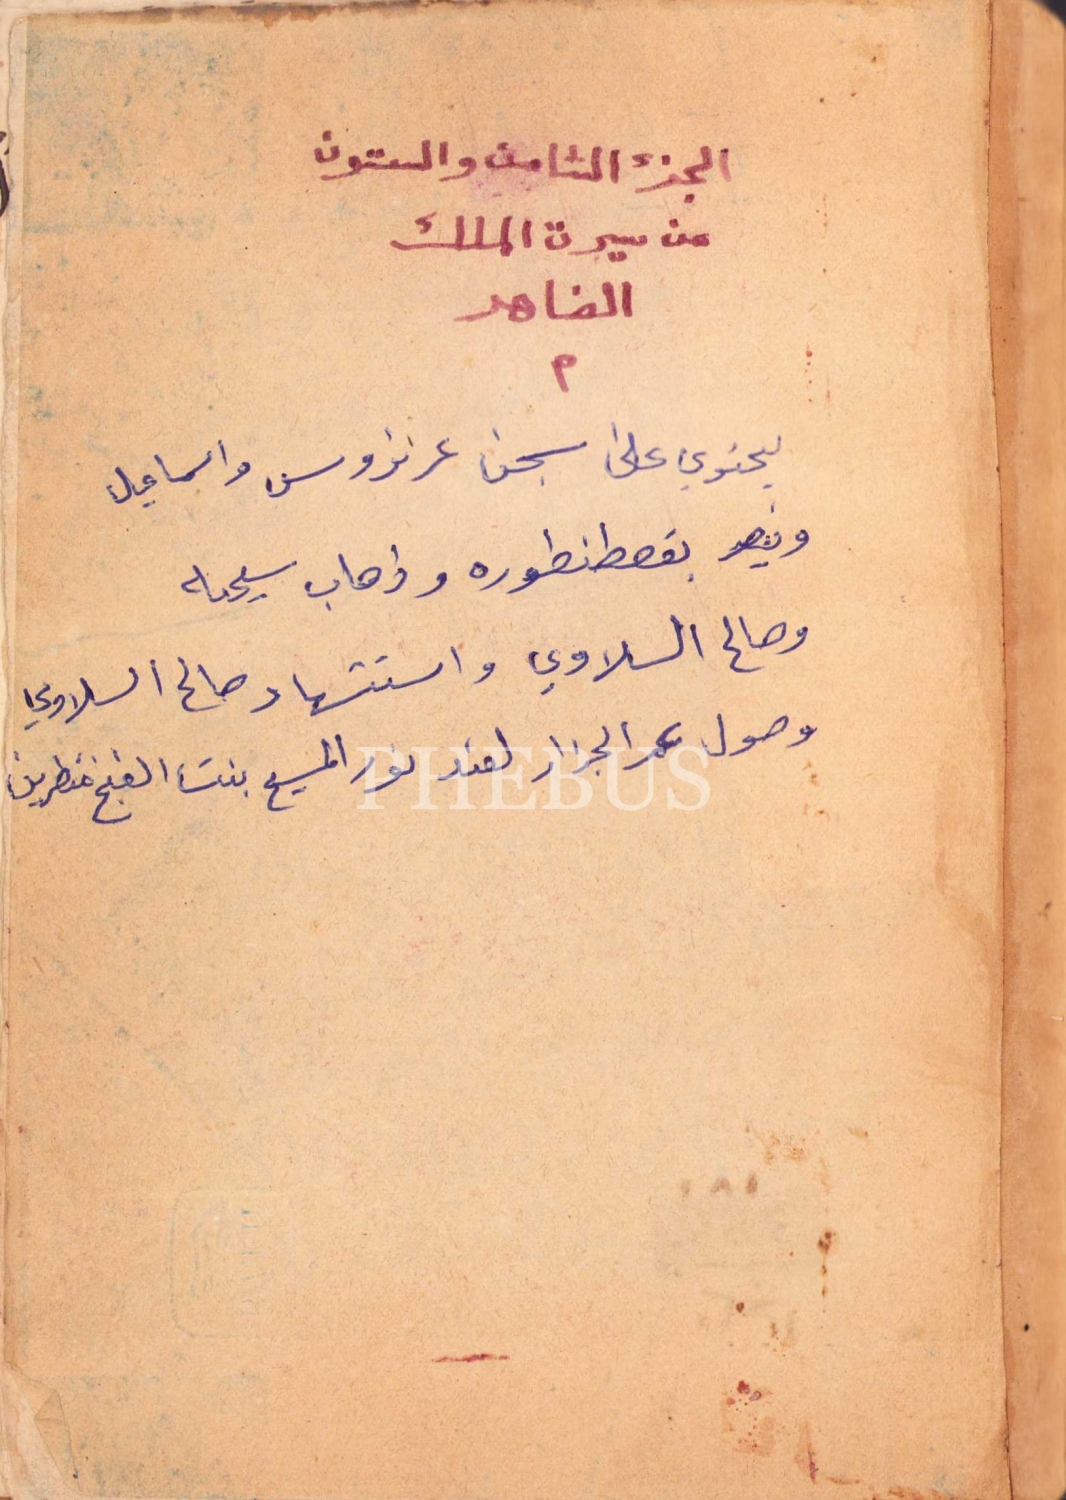 الجزء الثامن والستون
من سيرة الملك
الضاهر
م
يحتوي على سجن عرنوس واسماعيل
ونصر بقصطنطوره وذهاب سليمان
وصالح السلاوي واستشهاد صالح السلاوي
وصول عمر الجزار لعند نور المسيح بنت القبخ
PHEBUS